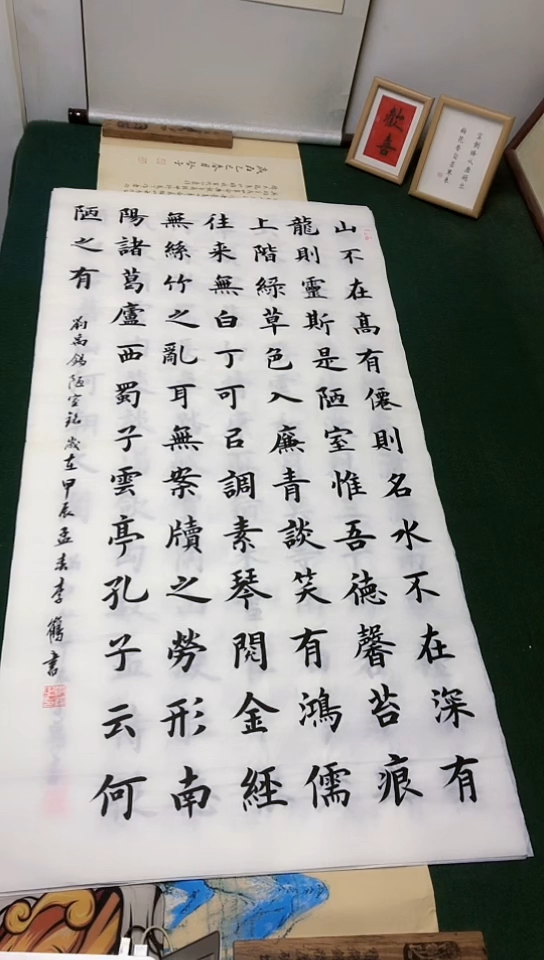 山不在髙有僊則名水不在深有
龍則靈斯是陋室惟吾德馨苔痕
上階綠草色入廉青談笑有鴻儒
往来無白丁可㠯調素琴閱金經
無絲竹之亂耳無案牘之勞形南
陽諸葛廬西蜀子雲亭孔子云何
陋之有
劉禹錫陋室銘歲在甲辰孟春李鶴書
歡喜